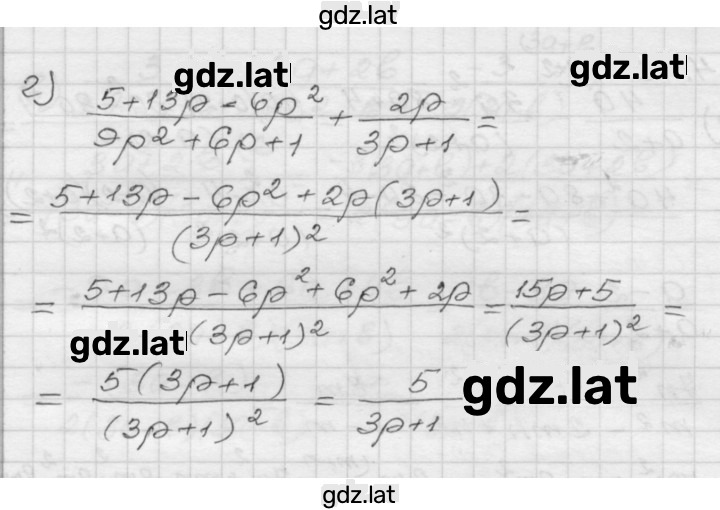 gdz.lat
gdz.lat
gdz.lat
г) (5+13p-6p²)/(9p²+6p+1) + 2p/(3p+1) =
= (5+13p-6p²+2p(3p+1))/(3p+1)² =
= (5+13p-6p²+6p²+2p)/(3p+1)² = (15p+5)/(3p+1)² =
gdz.lat
= 5(3p+1)/(3p+1)² = 5/(3p+1)
gdz.lat
gdz.lat